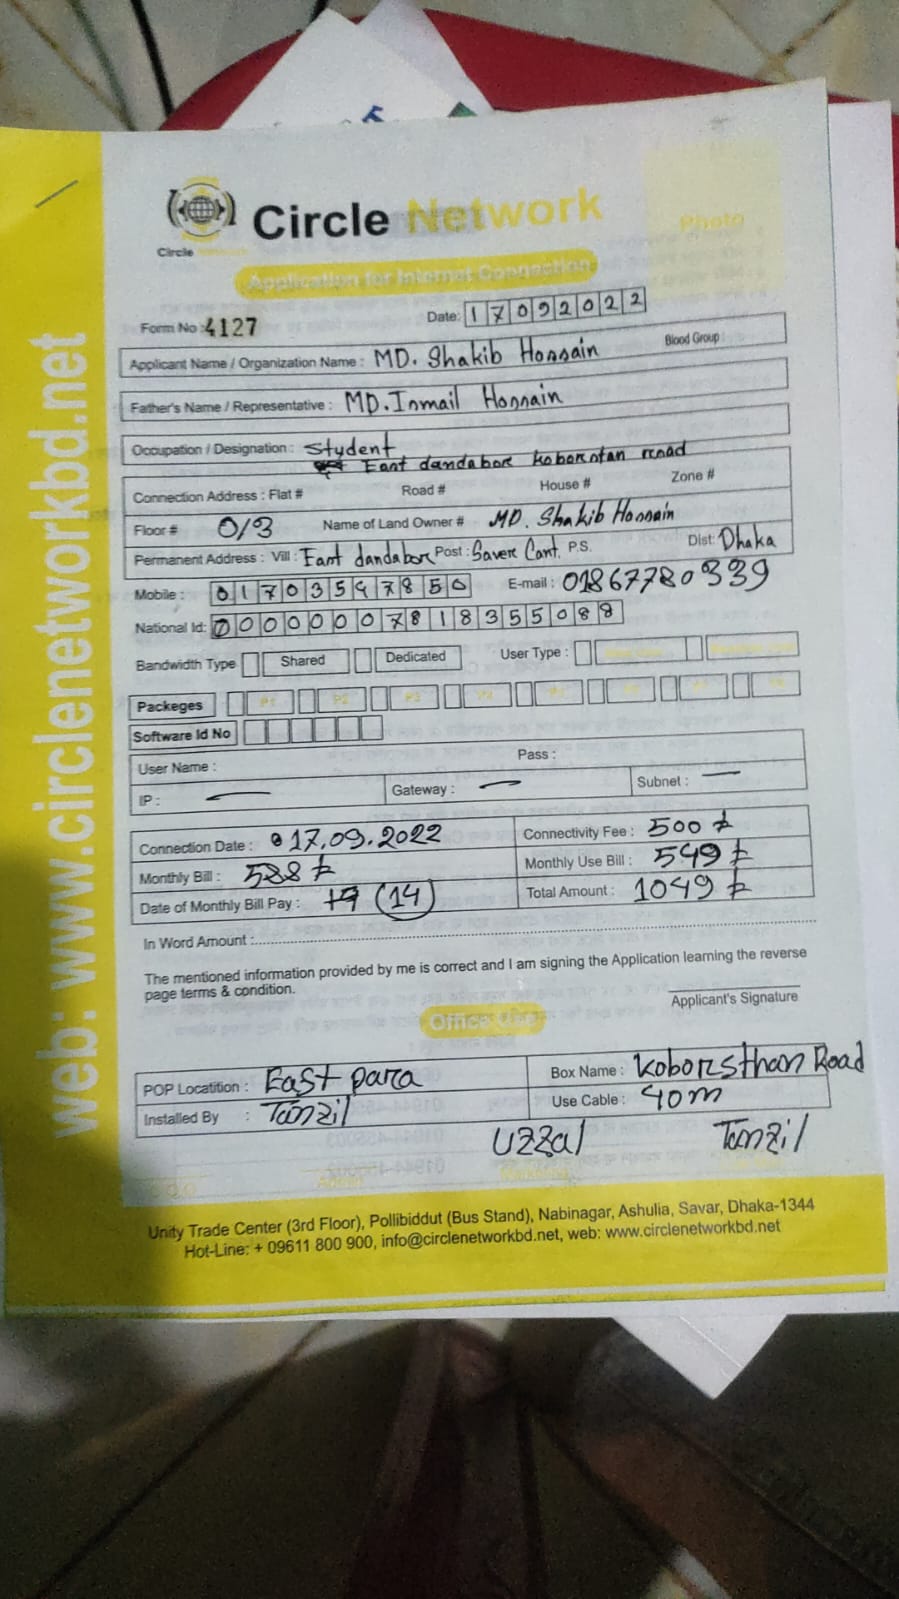 Circle Network
Circle
Photo
Application for Internet Connection
Form No : 4127
Date: 17092022
Applicant Name / Organization Name : MD. Shakib Hossain Blood Group :
Father's Name / Representative : MD. Ismail Hossain
Occupation / Designation : Stydent
East dandabor koborstan road
Connection Address : Flat # Road # House # Zone #
Floor # 0/3 Name of Land Owner # MD. Shakib Hossain
Permanent Address : Vill : East dandabor Post : Saver Cant. P.S. Dist: Dhaka
Mobile : E-mail : 01867780339
National Id:
Bandwidth Type Shared Dedicated User Type :
Packeges P1 P2 P3
Software Id No
User Name : Pass :
IP : — Gateway : — Subnet : —
Connection Date : 17.09.2022 Connectivity Fee : 500
Monthly Bill : Monthly Use Bill : 549
Date of Monthly Bill Pay : (14) Total Amount : 1049
In Word Amount :
The mentioned information provided by me is correct and I am signing the Application learning the reverse
page terms & condition.
Applicant's Signature
Office Use
POP Locatition : East para Box Name : Koborsthan Road
Installed By : Tanzil Use Cable : 40m
Uzzal Tanzil
Unity Trade Center (3rd Floor), Pollibiddut (Bus Stand), Nabinagar, Ashulia, Savar, Dhaka-1344
Hot-Line: + 09611 800 900, info@circlenetworkbd.net, web: www.circlenetworkbd.net
web: www.circlenetworkbd.net